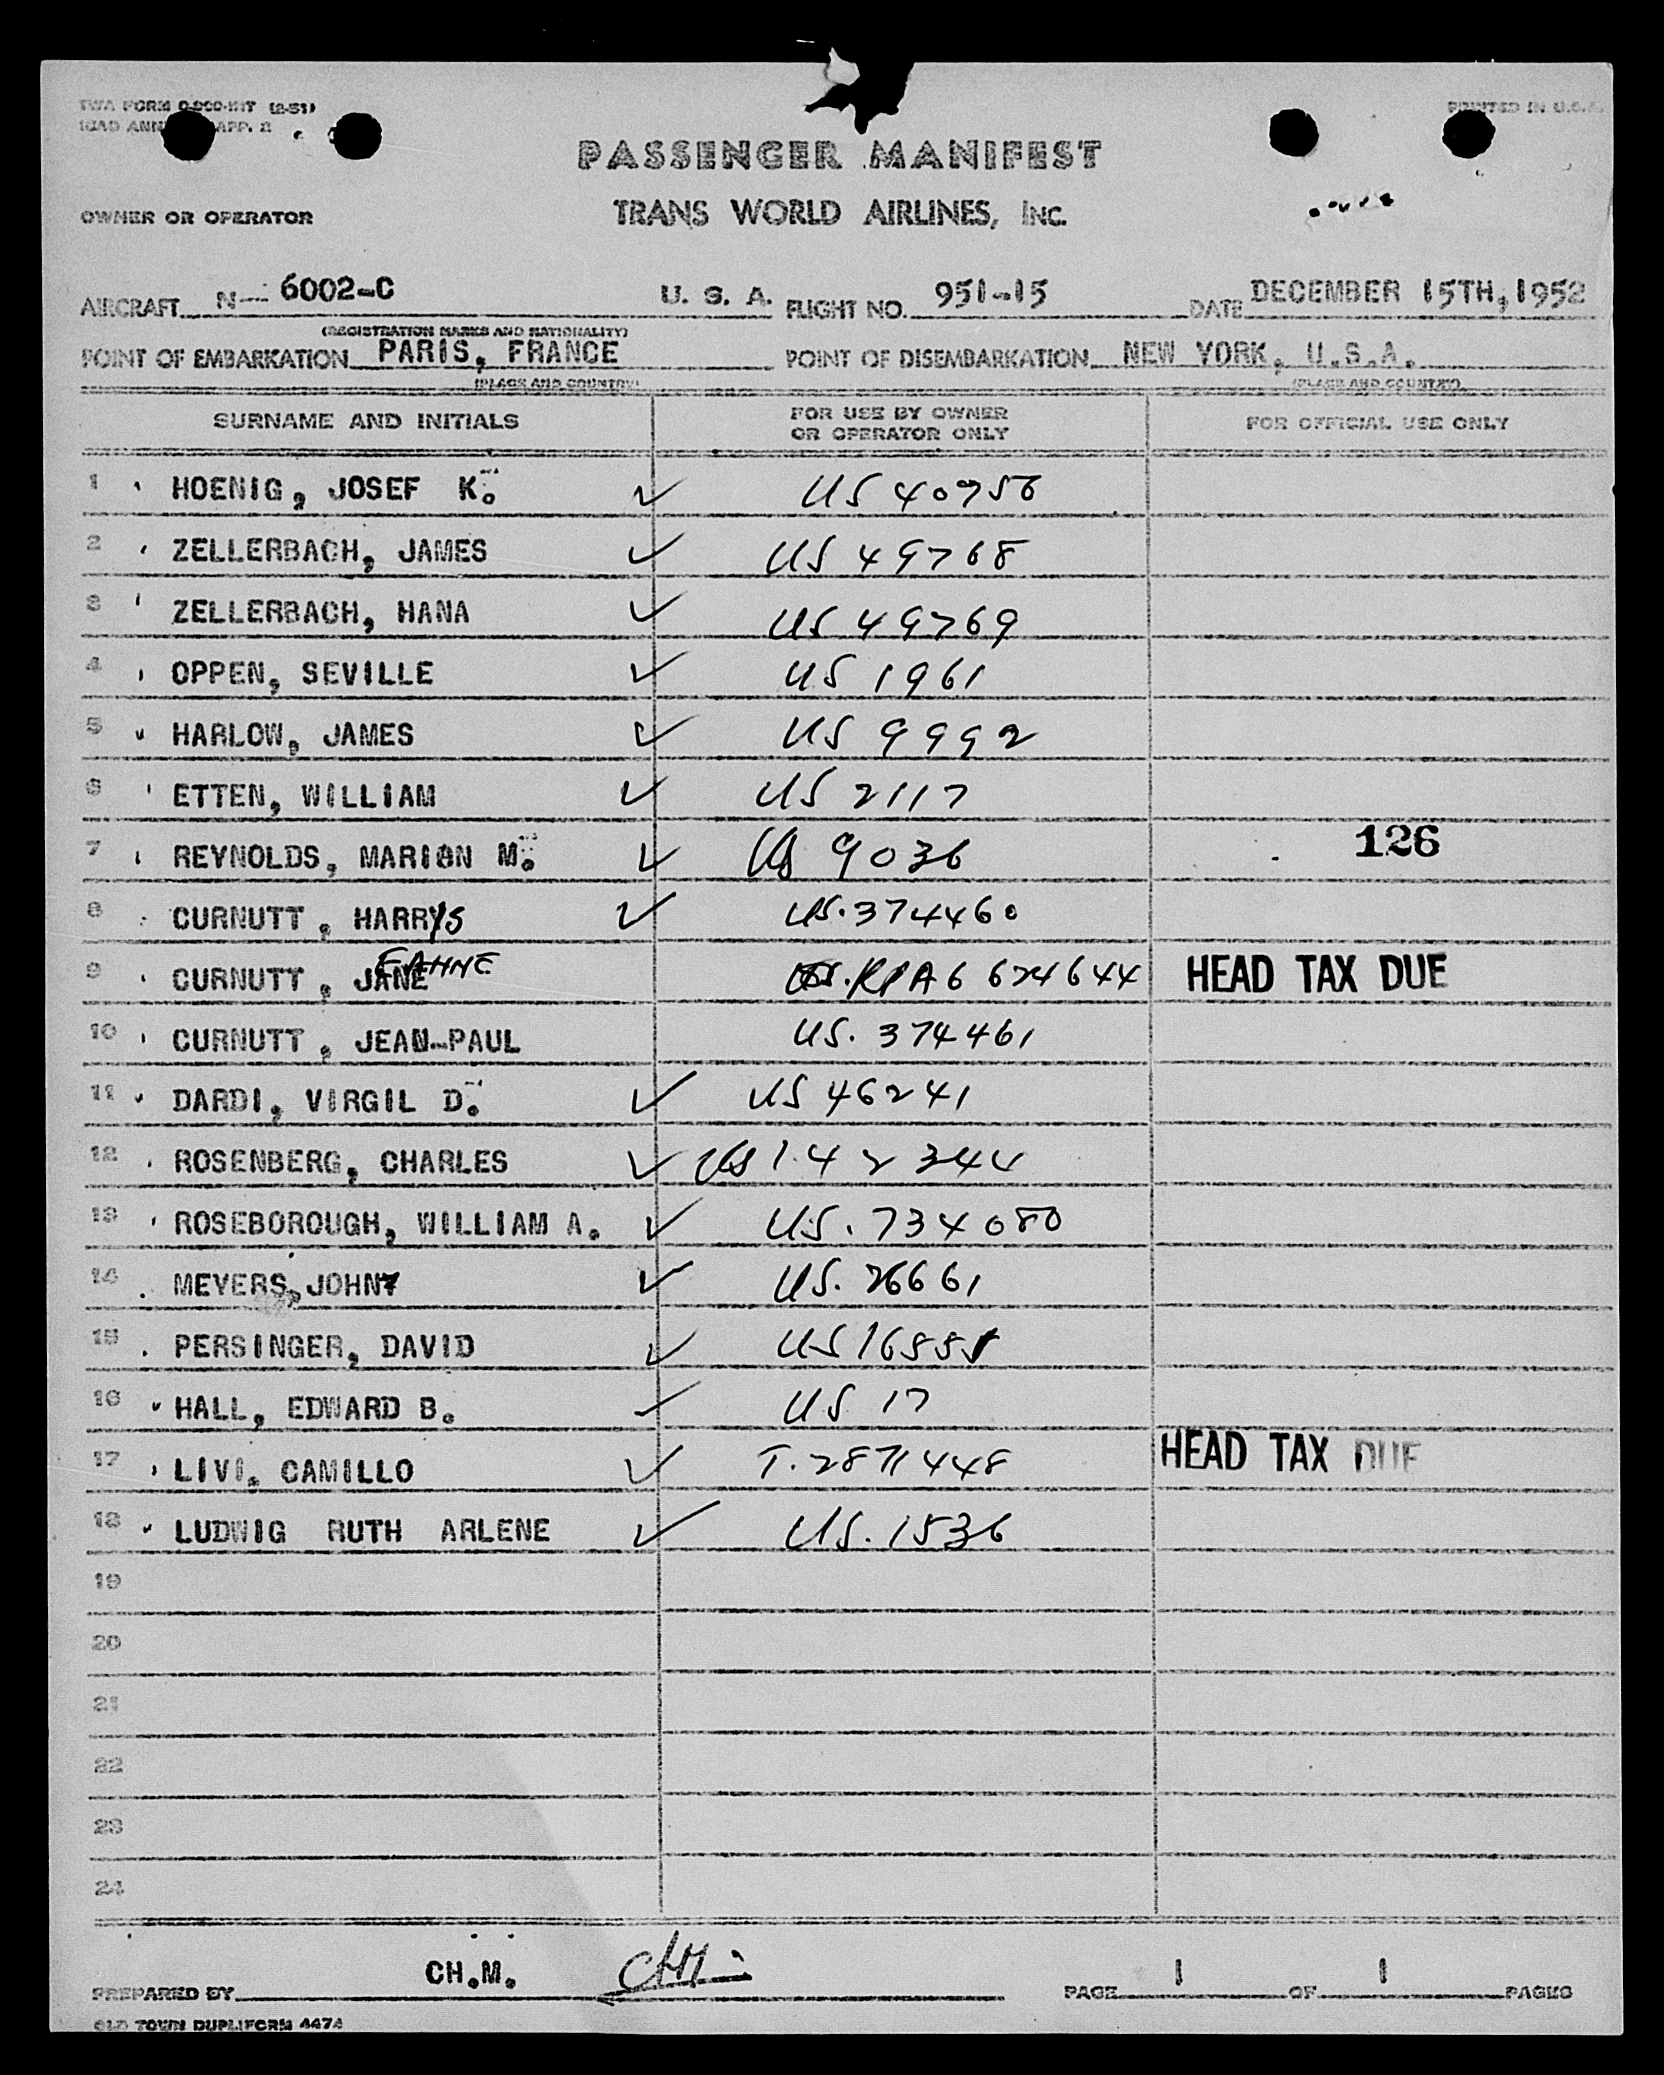 TWA FORM (2-51)
PRINTED IN U.S.A.
ICAO APP. 2
PASSENGER MANIFEST
OWNER OR OPERATOR TRANS WORLD AIRLINES, INC.
AIRCRAFT N- 6002-C U. S. A. FLIGHT NO. 951-15 DATE DECEMBER 15TH, 1952
(REGISTRATION MARKS AND NATIONALITY)
POINT OF EMBARKATION PARIS, FRANCE POINT OF DISEMBARKATION NEW YORK, U.S.A.
(PLACE AND COUNTRY) (PLACE AND COUNTRY)
SURNAME AND INITIALS FOR USE BY OWNER OR OPERATOR ONLY FOR OFFICIAL USE ONLY
1 HOENIG, JOSEF K. ✓ US 40756
2 ZELLERBACH, JAMES ✓ US 49768
3 ZELLERBACH, HANA ✓ US 49769
4 OPPEN, SEVILLE ✓ US 1961
5 HARLOW, JAMES ✓ US 9992
6 ETTEN, WILLIAM ✓ US 2117
7 REYNOLDS, MARION M. ✓ US 9036 126
8 CURNUTT, HARRYS ✓ US. 374460
9 CURNUTT, JANE 624644 HEAD TAX DUE
10 CURNUTT, JEAN-PAUL US. 374461
11 DARDI, VIRGIL D. ✓ US 46241
12 ROSENBERG, CHARLES ✓ US 1.42344
13 ROSEBOROUGH, WILLIAM A. ✓ US. 734080
14 MEYERS, JOHN ✓ US. 26661
15 PERSINGER, DAVID ✓ US
16 HALL, EDWARD B. ✓ US 17
17 LIVI, CAMILLO ✓ T. 2871448 HEAD TAX DUE
18 LUDWIG RUTH ARLENE ✓ US. 1536
19
20
21
22
23
24
PREPARED BY CH.M. CHM PAGE 1 OF 1 PAGES
OLD TOWN DUPLIFORM 4474